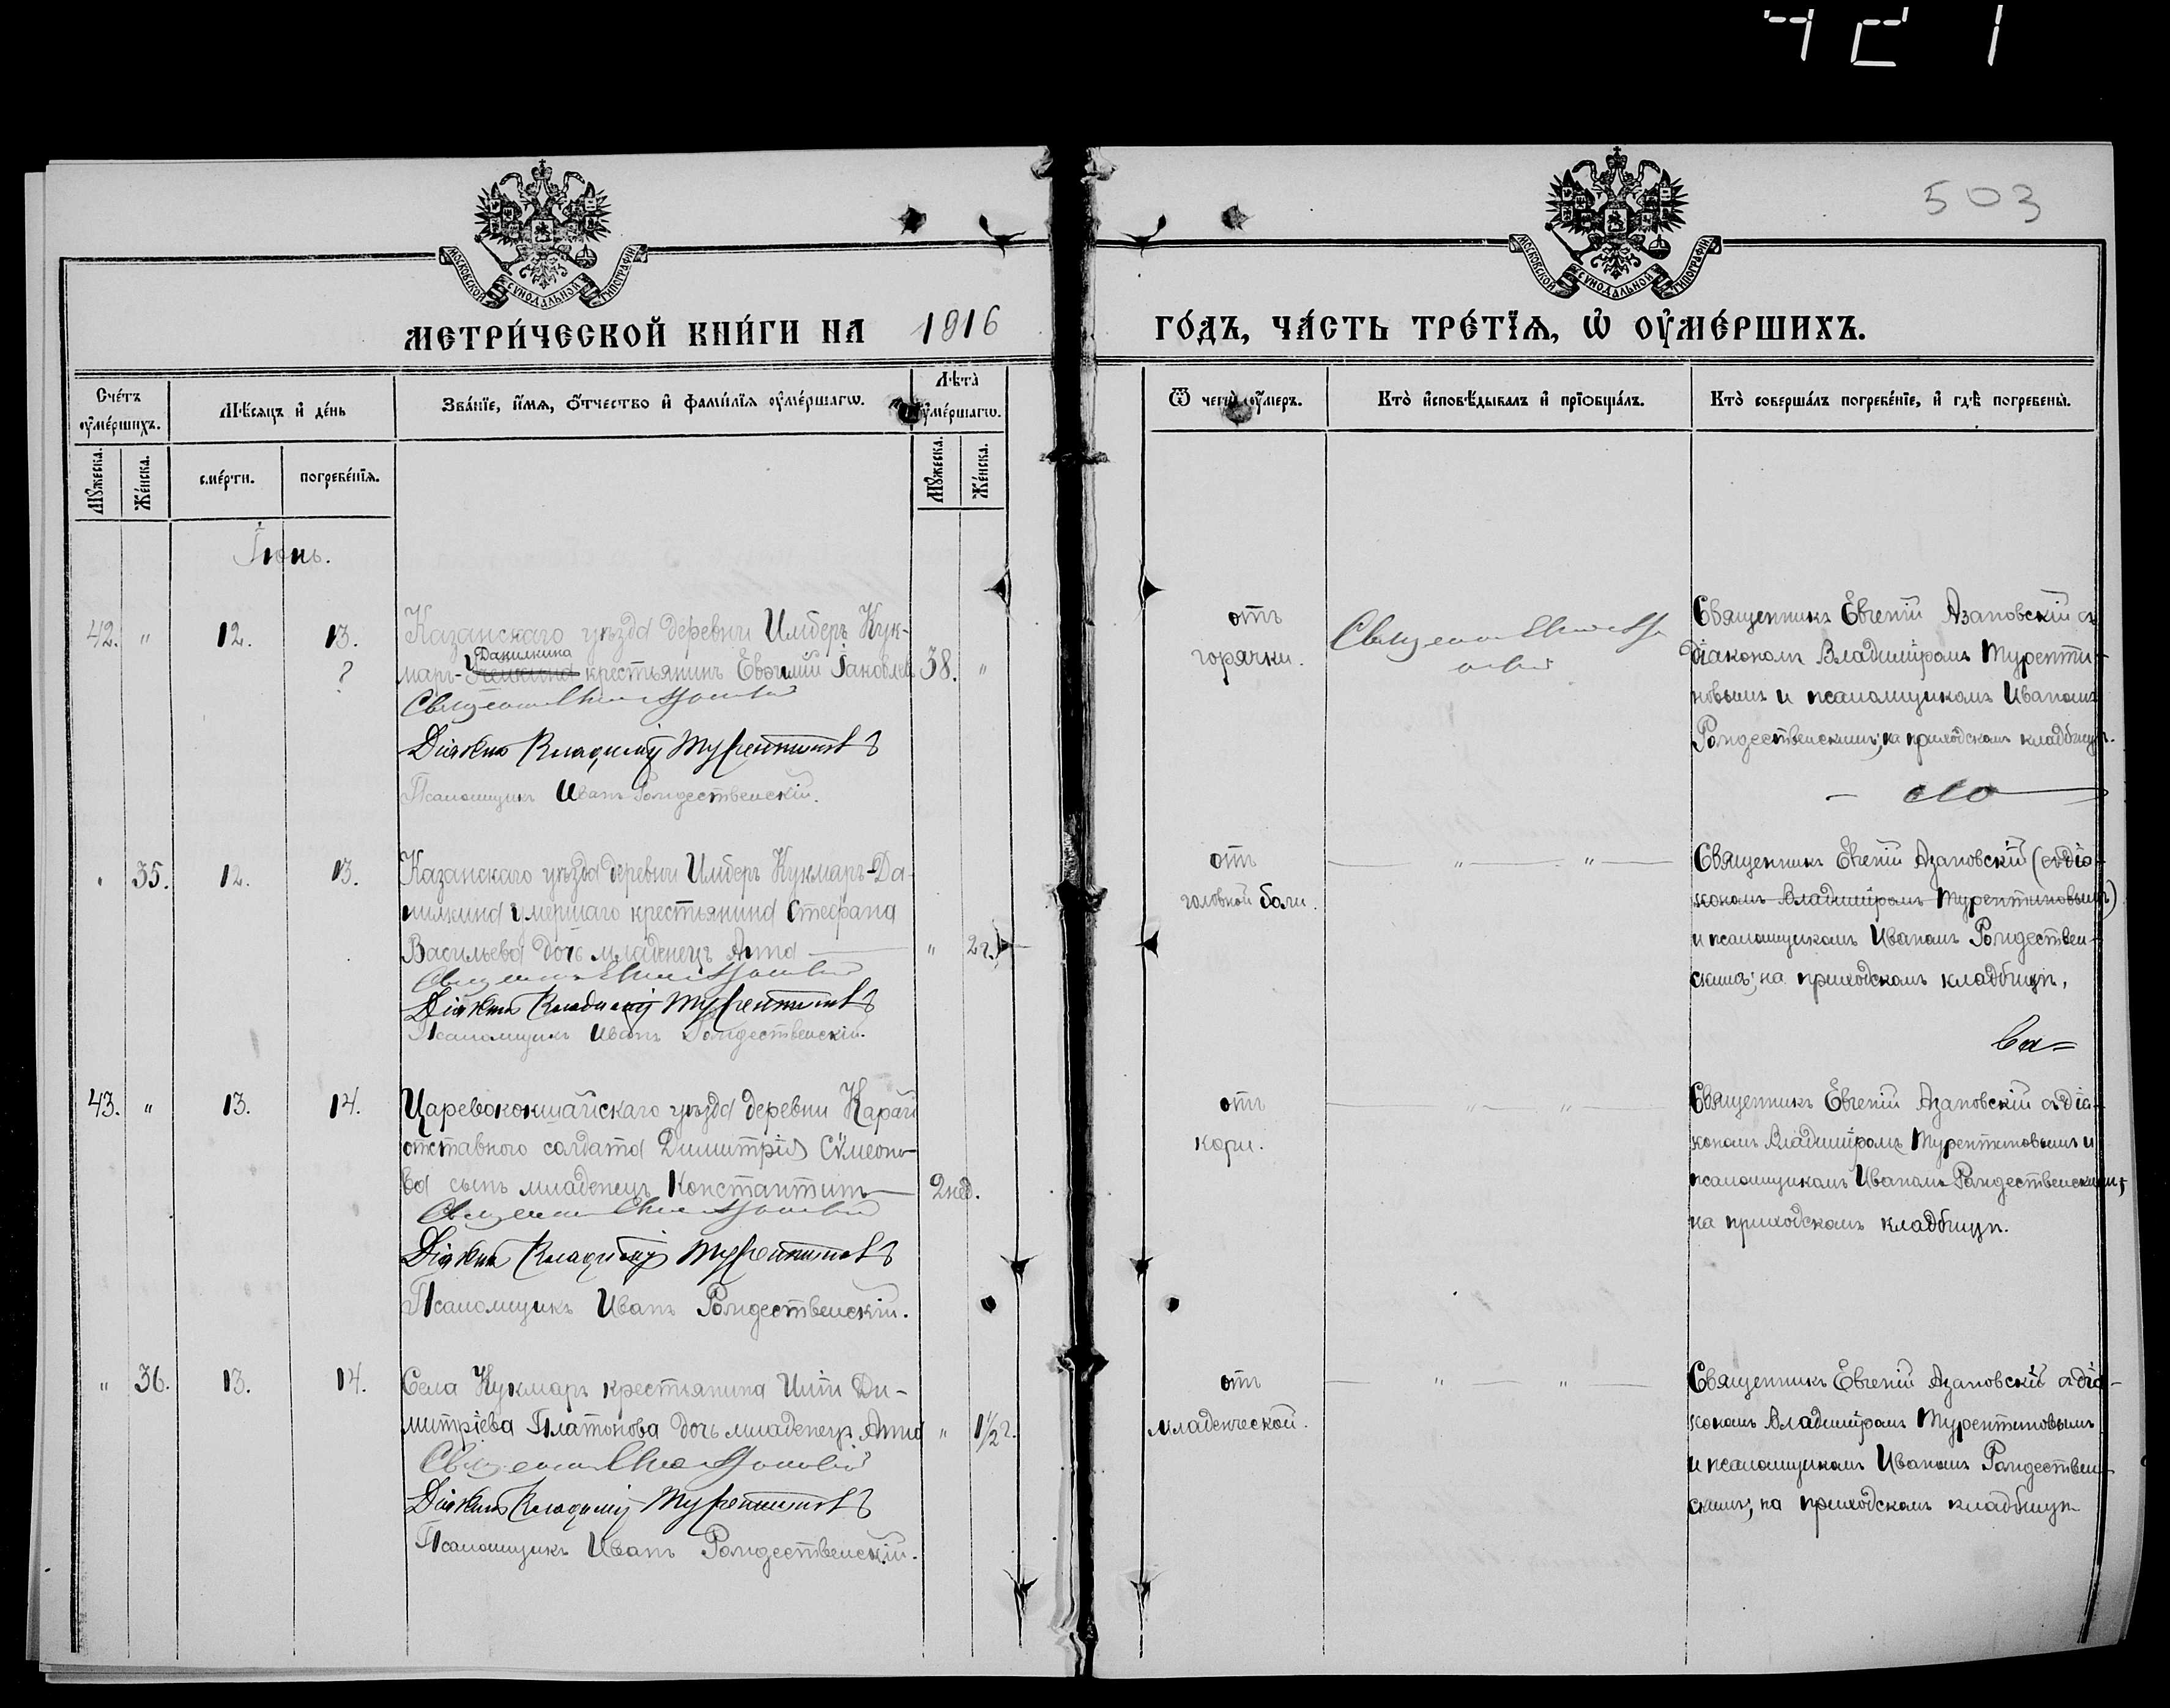 421
503
МОСКОВСКОЙ СУНОДАЛЬНОЙ ТИПОГРАФІИ
МОСКОВСКОЙ СУНОДАЛЬНОЙ ТИПОГРАФІИ
МЕТРИ́ЧЕСКОЙ КНИ́ГИ НА 1916 ГО́ДЪ, ЧА́СТЬ ТРЕ́ТЇѦ, Ѡ҆ ОУ҆МЕ́РШИХЪ.
Сче́тъ оу҆ме́ршихъ.
Мѣ́сяцъ и҆ де́нь
Зва́нїе, и҆́мѧ, ѻ҆́тчество и҆ фами́лїѧ оу҆ме́ршагѡ.
Лѣта̀ оу҆ме́ршагѡ.
Ѿ чегѡ̀ оу҆́меръ.
Кто̀ и҆сповѣ́дывалъ и҆ прїѡбща́лъ.
Кто̀ соверша́лъ погребе́нїе, и҆ гдѣ̀ погребены̀.
Мꙋ́жеска.
Же́нска.
сме́рти.
погребе́нїѧ.
Мꙋ́жеска.
Же́нска.
Іюнь.
42. " 12. 13. Казанскаго уѣзда деревни Илиберъ Кук-
?
Данилкина
маръ- крестьянинъ Евѳимій Іаковлев 38. "
Діаконъ Владимиръ Турентиновъ
Псаломщикъ Иванъ Рождественскій.
отъ
горячки.
Священникъ
Священникъ Евгеній Азановскій съ
діакономъ Владиміромъ Туренти-
новымъ и псаломщикомъ Иваномъ
Рождественскимъ; на приходскомъ кладбищѣ.
" 35. 12. 13. Казанскаго уѣзда деревни Илиберъ Кукмаръ-Да-
нилкина умершаго крестьянина Стефана
Васильева дочь младенецъ Анна " 2 г.
Діаконъ Владимиръ Турентиновъ
Псаломщикъ Иванъ Рождественскій.
отъ
головной боли.
" "
Священникъ Евгеній Азановскій (съ діа-
кономъ Владиміромъ Турентиновымъ)
и псаломщикомъ Иваномъ Рождествен-
скимъ; на приходскомъ кладбищѣ.
43. " 13. 14. Царевококшайскаго уѣзда деревни Карай
отставного солдата Димитрія Сѵмеоно-
ва сынъ младенецъ Константинъ 2 нед.
Діаконъ Владимиръ Турентиновъ
Псаломщикъ Иванъ Рождественскій.
отъ
кори.
" "
Священникъ Евгеній Азановскій съ діа-
кономъ Владиміромъ Турентиновымъ и
псаломщикомъ Иваномъ Рождественскимъ;
на приходскомъ кладбищѣ.
" 36. 13. 14. Села Кукмаръ крестьянина Иліи Ди-
митріева Платонова дочь младенецъ Анна " 1½ г.
Діаконъ Владимиръ Турентиновъ
Псаломщикъ Иванъ Рождественскій.
отъ
младенческой.
" "
Священникъ Евгеній Азановскій съ діа-
кономъ Владиміромъ Турентиновымъ
и псаломщикомъ Иваномъ Рождествен-
скимъ; на приходскомъ кладбищѣ